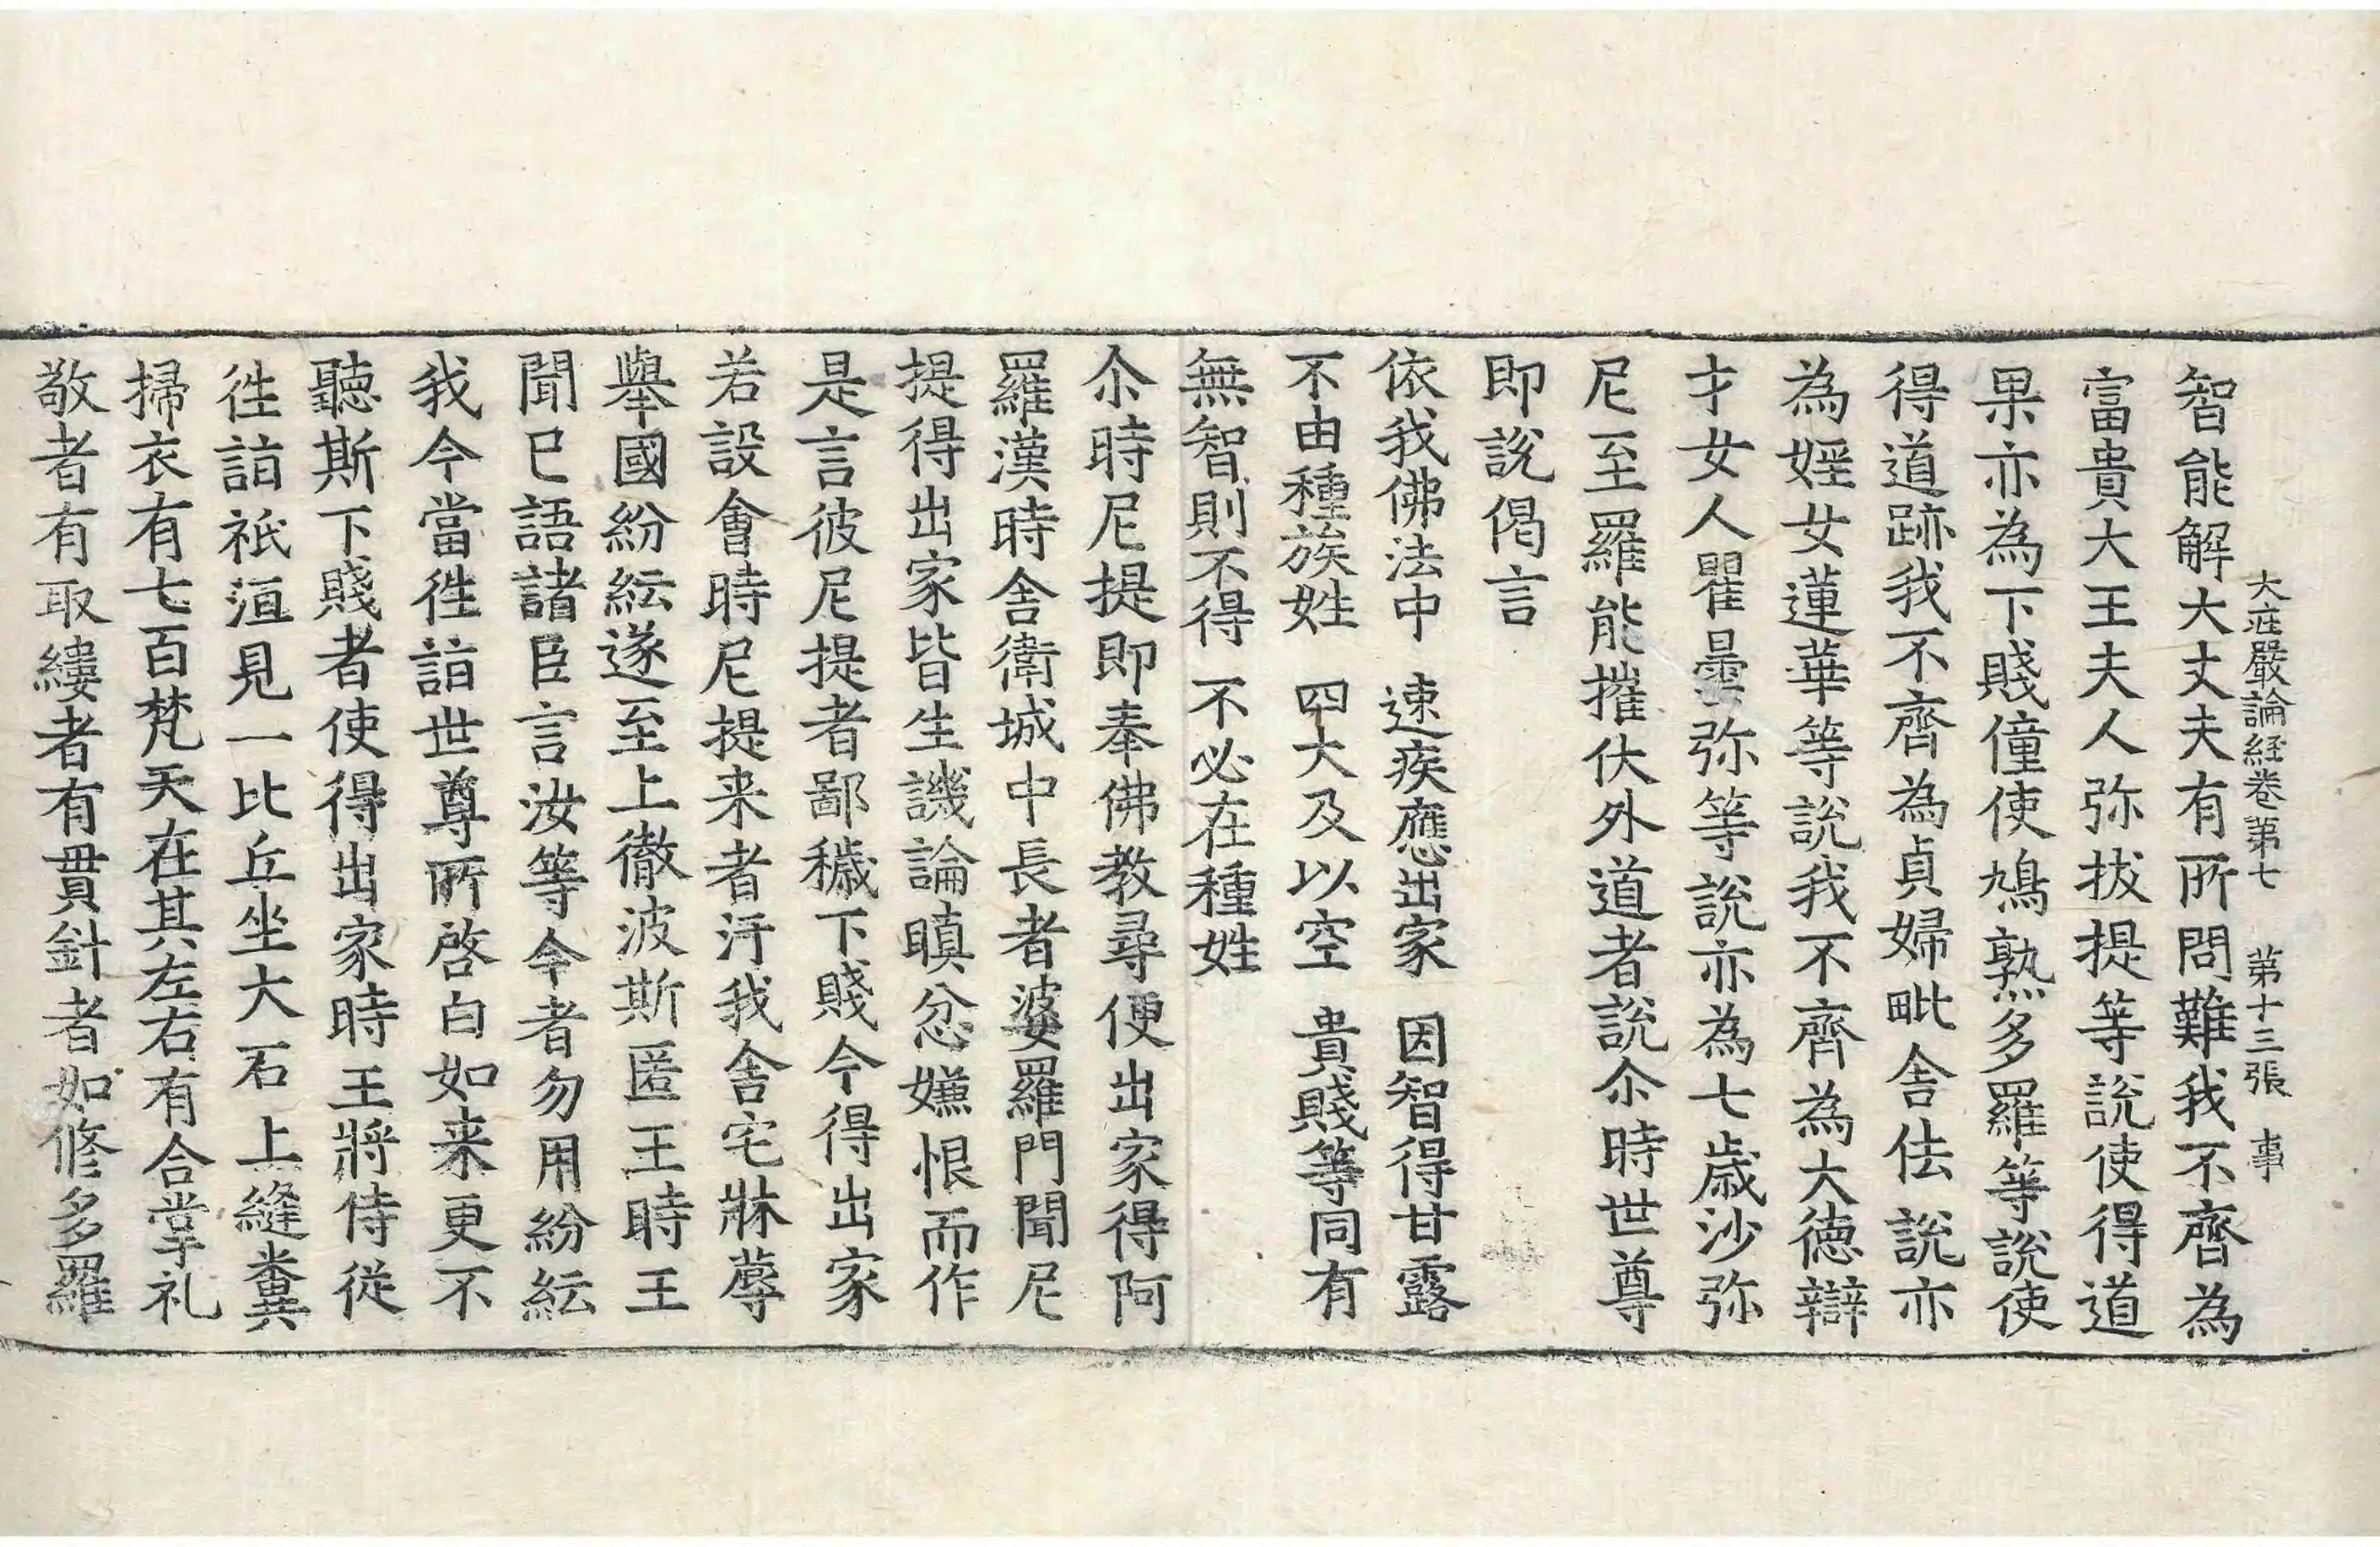 大庄嚴論経卷第七　第十三張　事
智能解大丈夫有所問難我不齊為
富貴大王夫人弥拔提等説使得道
果亦為下賤僮使鳩熟多羅等説使
得道跡我不齊為貞婦毗舍佉説亦
為婬女蓮華等説我不齊為大徳辯
才女人瞿曇弥等説亦為七歳沙弥
尼至羅能摧伏外道者説尒時世尊
即説偈言
依我佛法中　速疾應出家　因智得甘露
不由種族姓　四大及以空　貴賤等同有
無智則不得　不必在種姓
尒時尼提即奉佛教尋便出家得阿
羅漢時舍衛城中長者婆羅門聞尼
提得出家皆生譏論瞋忿嫌恨而作
是言彼尼提者鄙穢下賤今得出家
若設會時尼提来者汙我舍宅牀蓐
舉國紛紜遂至上徹波斯匿王時王
聞已語諸臣言汝等今者勿用紛紜
我今當徃詣世尊所啓白如来更不
聽斯下賤者使得出家時王將侍従
徃詣祇洹見一比丘坐大石上縫糞
掃衣有七百梵天在其左右有合掌礼
敬者有取縷者有貫針者如修多羅